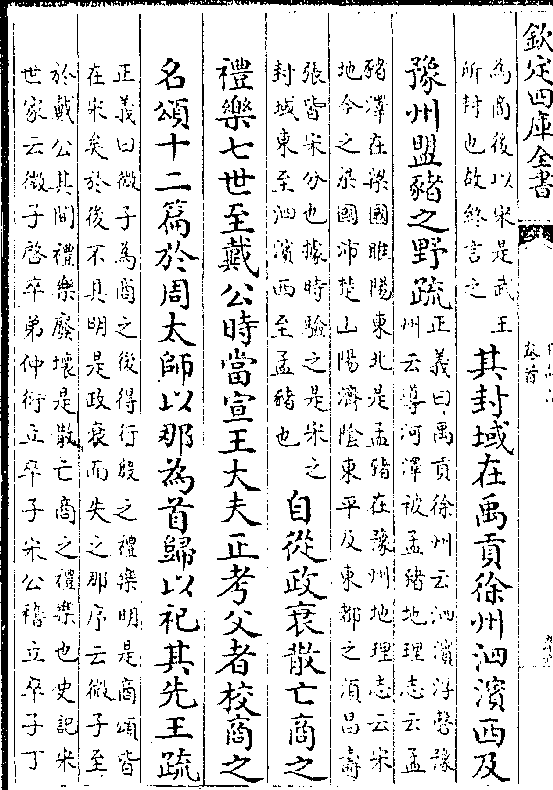 欽定四庫全書
卷首
為商後以宋是武王
所封也故終言之
其封域在禹貢徐州泗濱西及
豫州盟豬之野疏
正義曰禹貢徐州云泗濱浮磬豫
州云導河澤被孟豬地理志云孟
豬澤在梁國睢陽東北是孟豬在豫州地理志云宋
地今之梁國沛楚山陽濟陰東平及東都之須昌壽
張皆宋分也據時驗之是宋之
封域東至泗濱西至孟豬也
自從政衰散亡商之
禮樂七世至戴公時當宣王大夫正考父者校商之
名頌十二篇於周太師以那為首歸以祀其先王疏
正義曰微子為商之後得行殷之禮樂明是商頌皆
在宋矣於後不具明是政衰而失之那序云微子至
於戴公其間禮樂廢壞是散亡商之禮樂也史記宋
世家云微子啓卒弟仲衍立卒子宋公稽立卒子丁